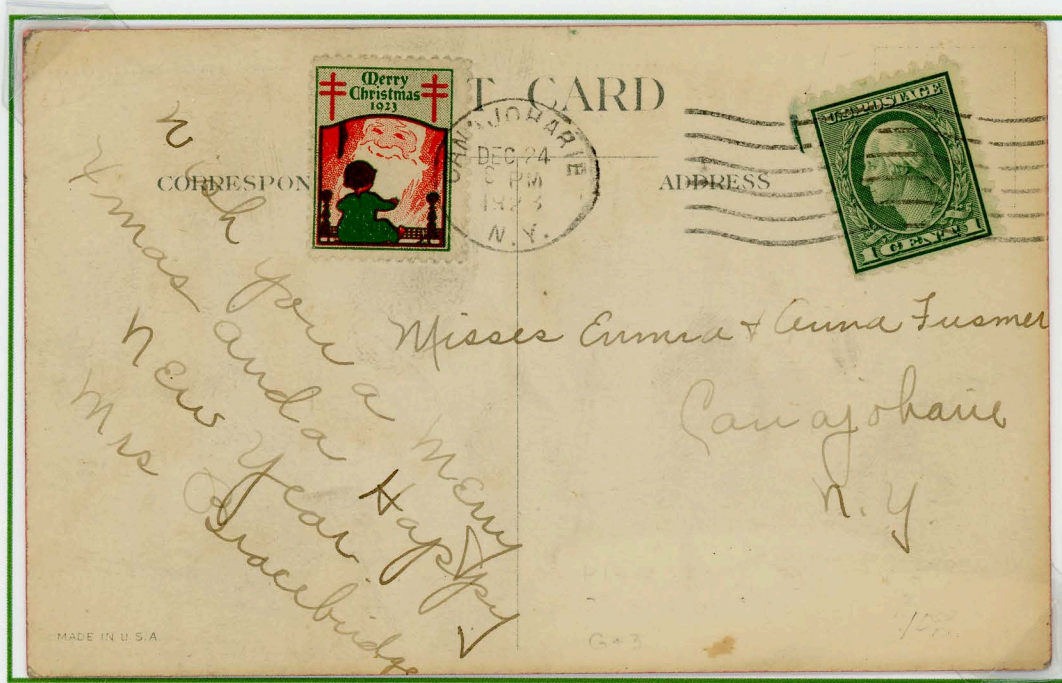 Merry
Christmas
1923
T CARD
CANAJOHARIE
DEC 24
PM
1923
N.Y.
U.S. POSTAGE
1 CENT 1
CORRESPON
ADDRESS
Wish you a Merry
Xmas and a Happy
New Year.
Mrs Bracebridge
Misses Emma & Anna Fusmer
Canajoharie
N.Y.
MADE IN U.S.A.
G43